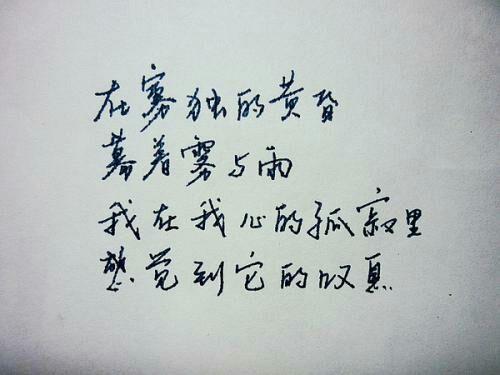 在独的黄昏
幕着雾与雨
我在我心的孤寂里
感觉到它的叹息